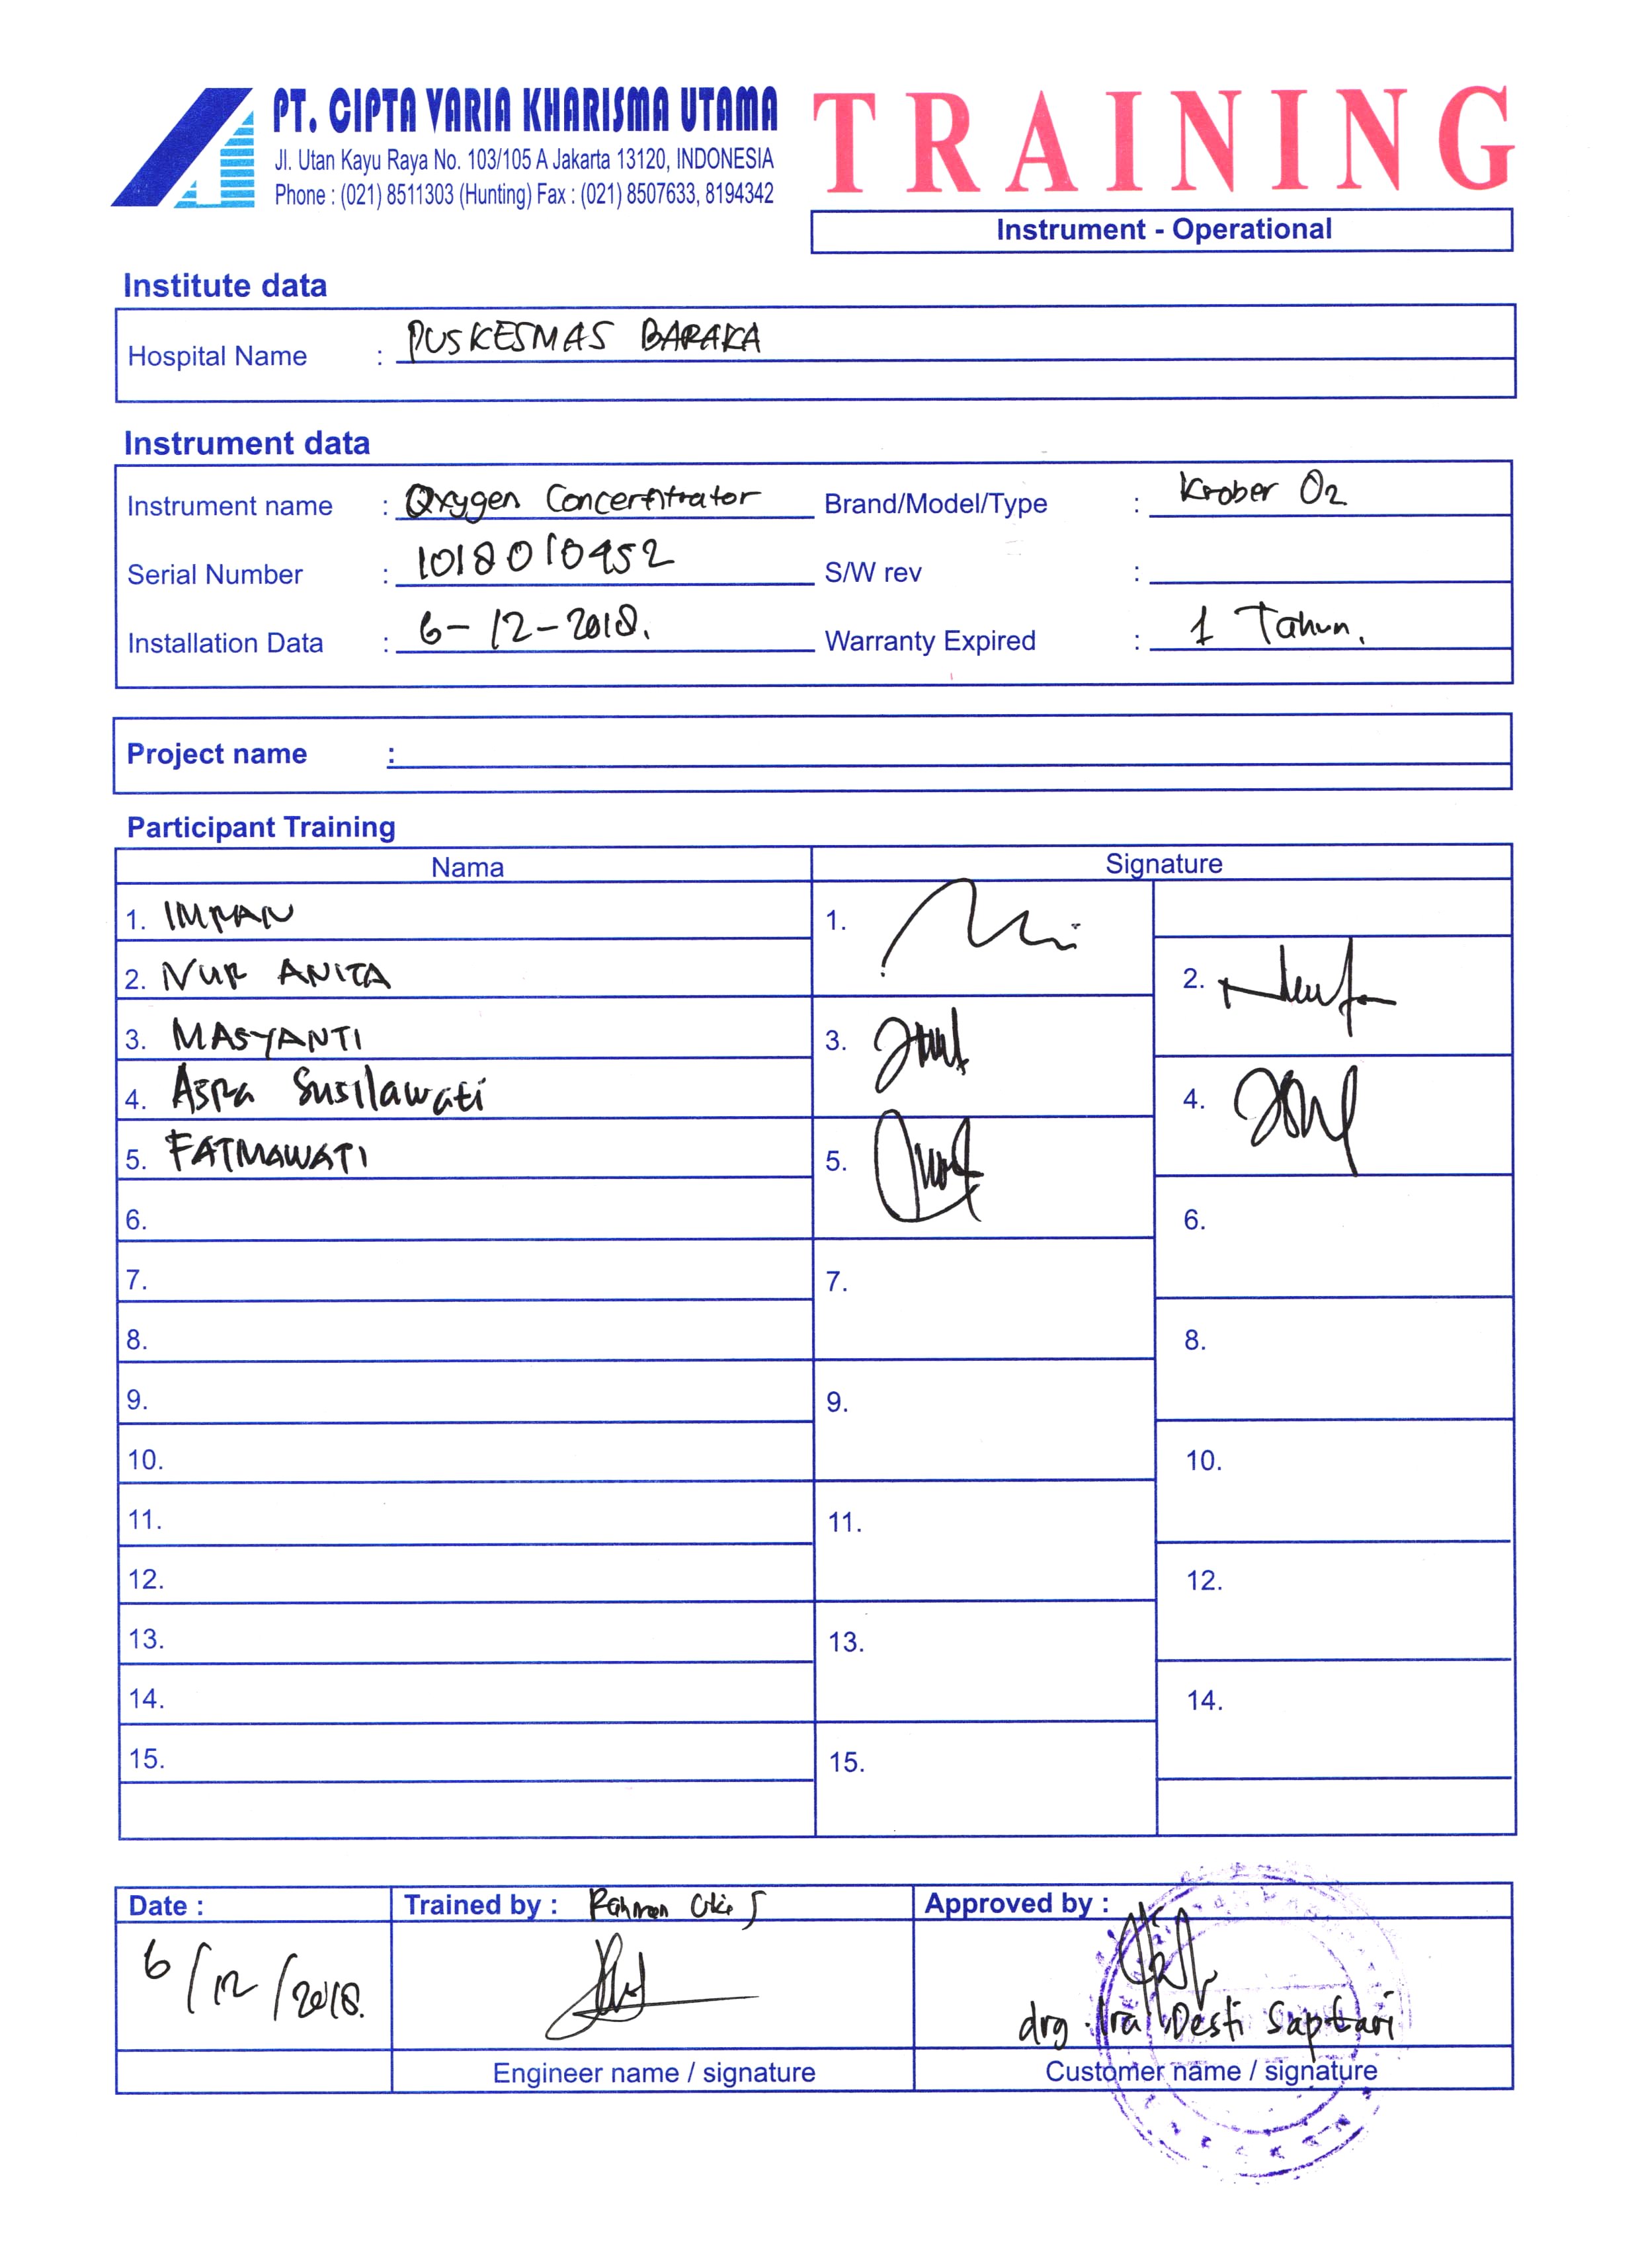 PT. CIPTA VARIA KHARISMA UTAMA
Jl. Utan Kayu Raya No. 103/105 A Jakarta 13120, INDONESIA
Phone : (021) 8511303 (Hunting) Fax : (021) 8507633, 8194342
TRAINING
Instrument - Operational
Institute data
Hospital Name : PUSKESMAS BARAKA
Instrument data
Instrument name : Oxygen Concentrator Brand/Model/Type : Krober O2
Serial Number : 1018010452 S/W rev :
Installation Data : 6-12-2018. Warranty Expired : 1 Tahun.
Project name :
Participant Training
Nama Signature
1. IMRAN 1.
2. NUR ANITA 2.
3. MASYANTI 3.
4. ASRA Susilawati 4.
5. FATMAWATI 5.
6. 6.
7. 7.
8. 8.
9. 9.
10. 10.
11. 11.
12. 12.
13. 13.
14. 14.
15. 15.
Date : Trained by : Rahman Approved by :
6/12/2018.
drg. Ira Desti Saptari
Engineer name / signature Customer name / signature